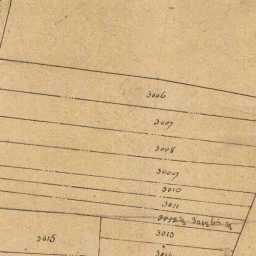 3006
3007
3008
3009
3010
3011
3013
3015